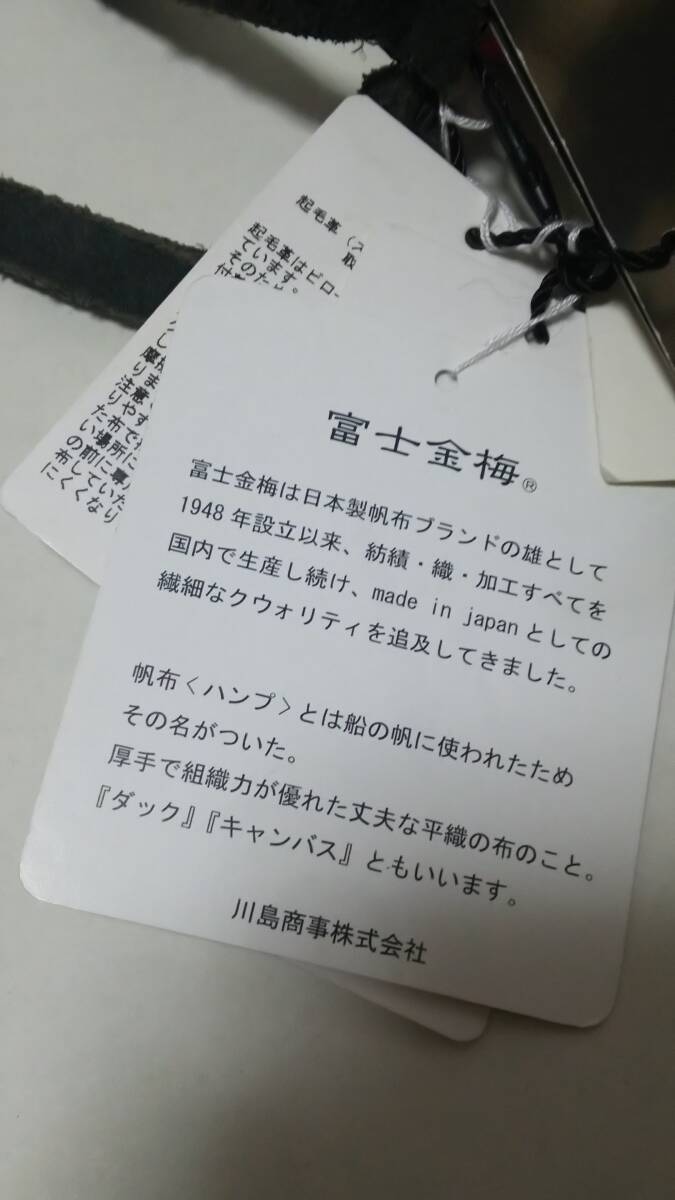 起毛革（ス
取
起毛革はビロー
ています。
そのため
富士金梅®
富士金梅は日本製帆布ブランドの雄として
1948年設立以来、紡績・織・加工すべてを
国内で生産し続け、made in japanとしての
繊細なクウォリティを追及してきました。
帆布〈ハンプ〉とは船の帆に使われたため
その名がついた。
厚手で組織力が優れた丈夫な平織の布のこと。
『ダック』『キャンバス』ともいいます。
川島商事株式会社
りま
注意
りやす
た布で
い場所に
の前に専
布していた
にくくなり